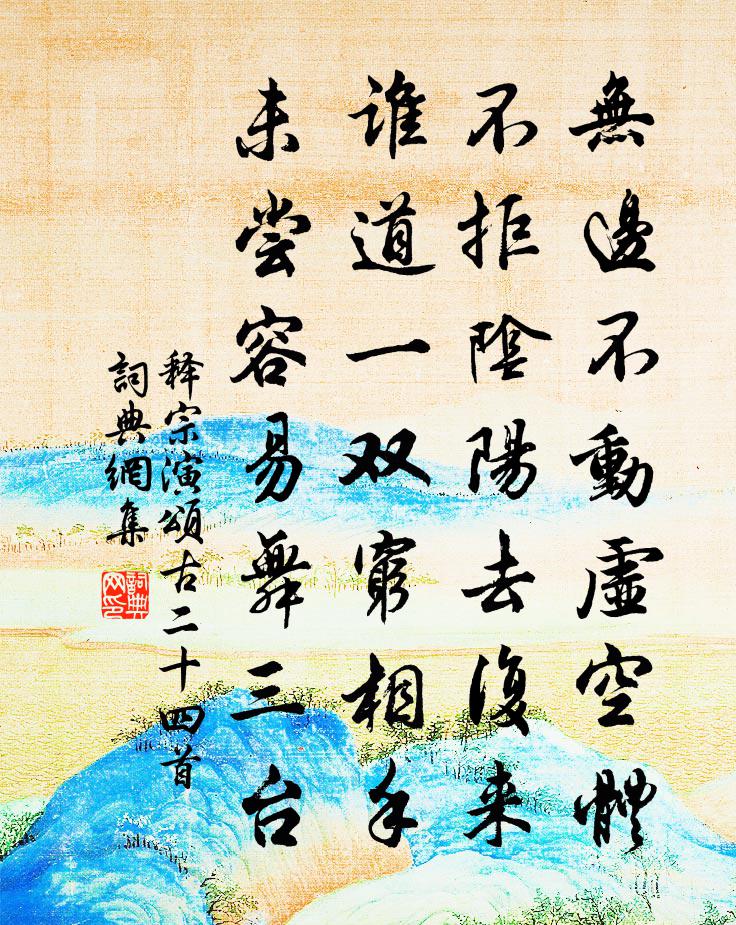 無邊不動虛空體
不拒陰陽去復来
谁道一双窮相手
未尝容易舞三台
释宗演頌古二十四首
詞典網集
詞典
网印